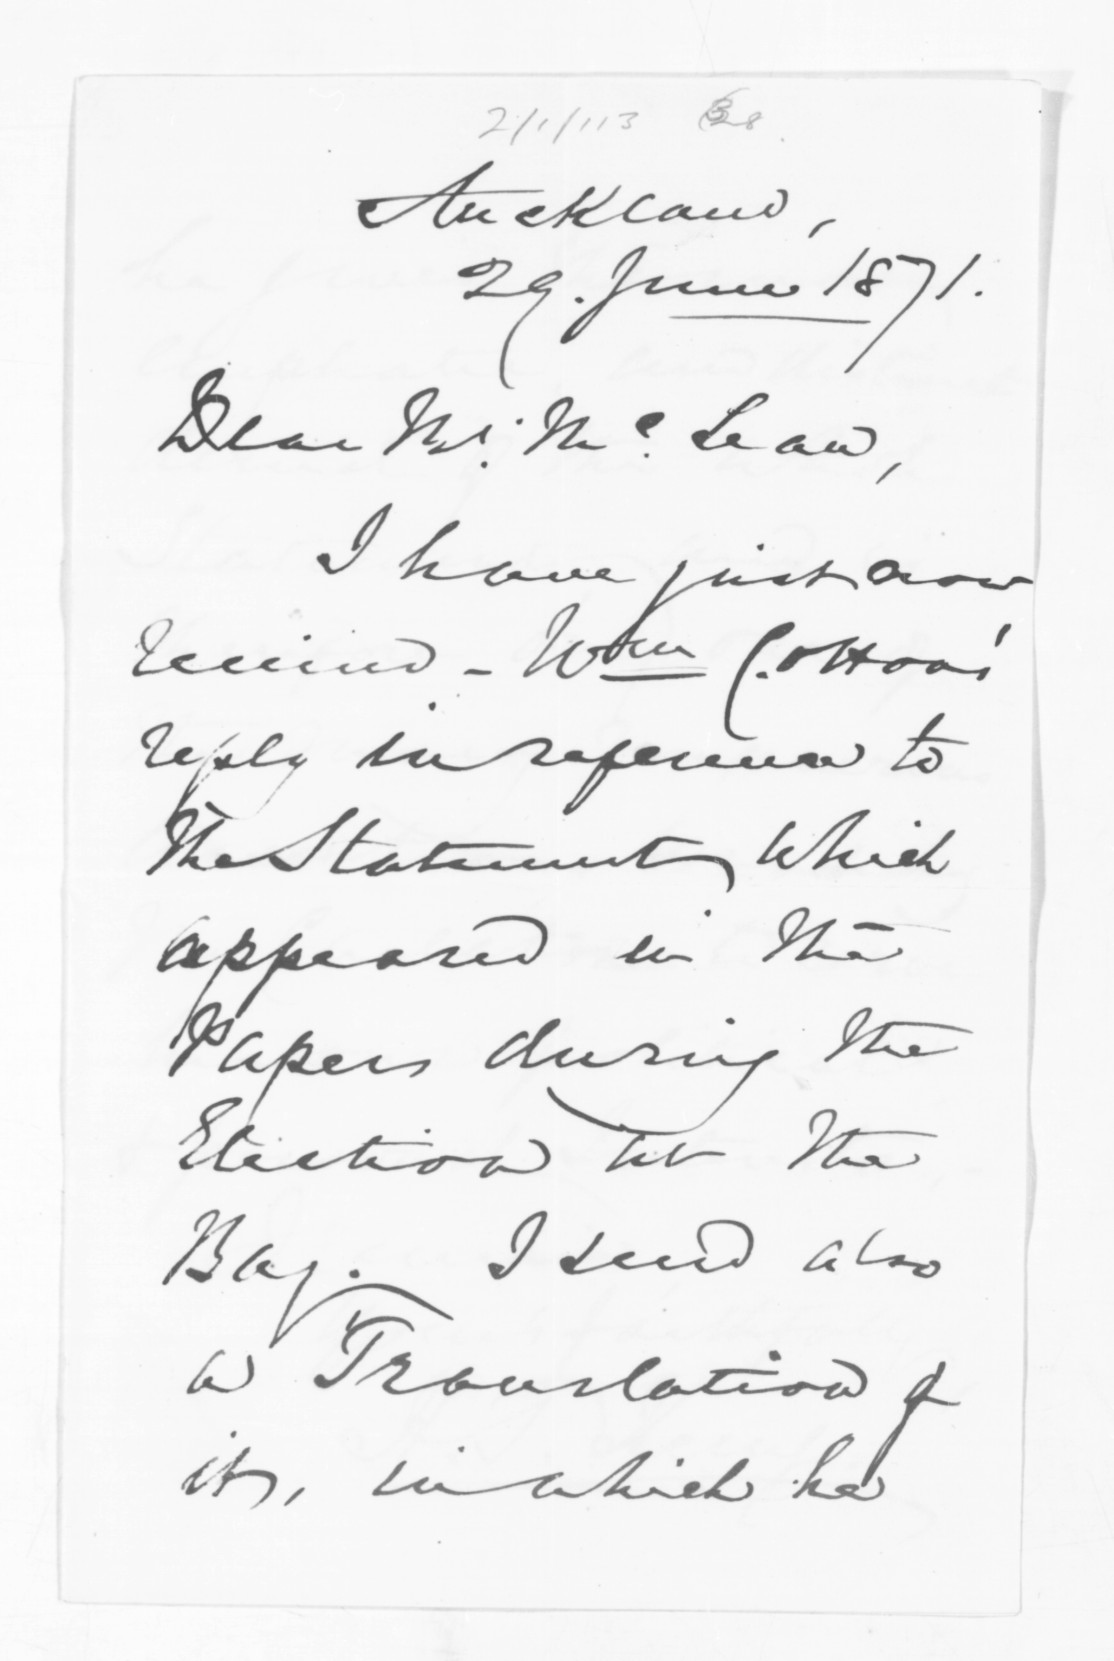 2/1/113
Auckland,
29. June 1871.
Dear Mr. Mc. Lean,
I have just now
received - Wm Cotton's
reply in reference to
the Statement, which
appeared in the
Papers during the
Election at the
Bay. I send also
a Translation of
it, in which he